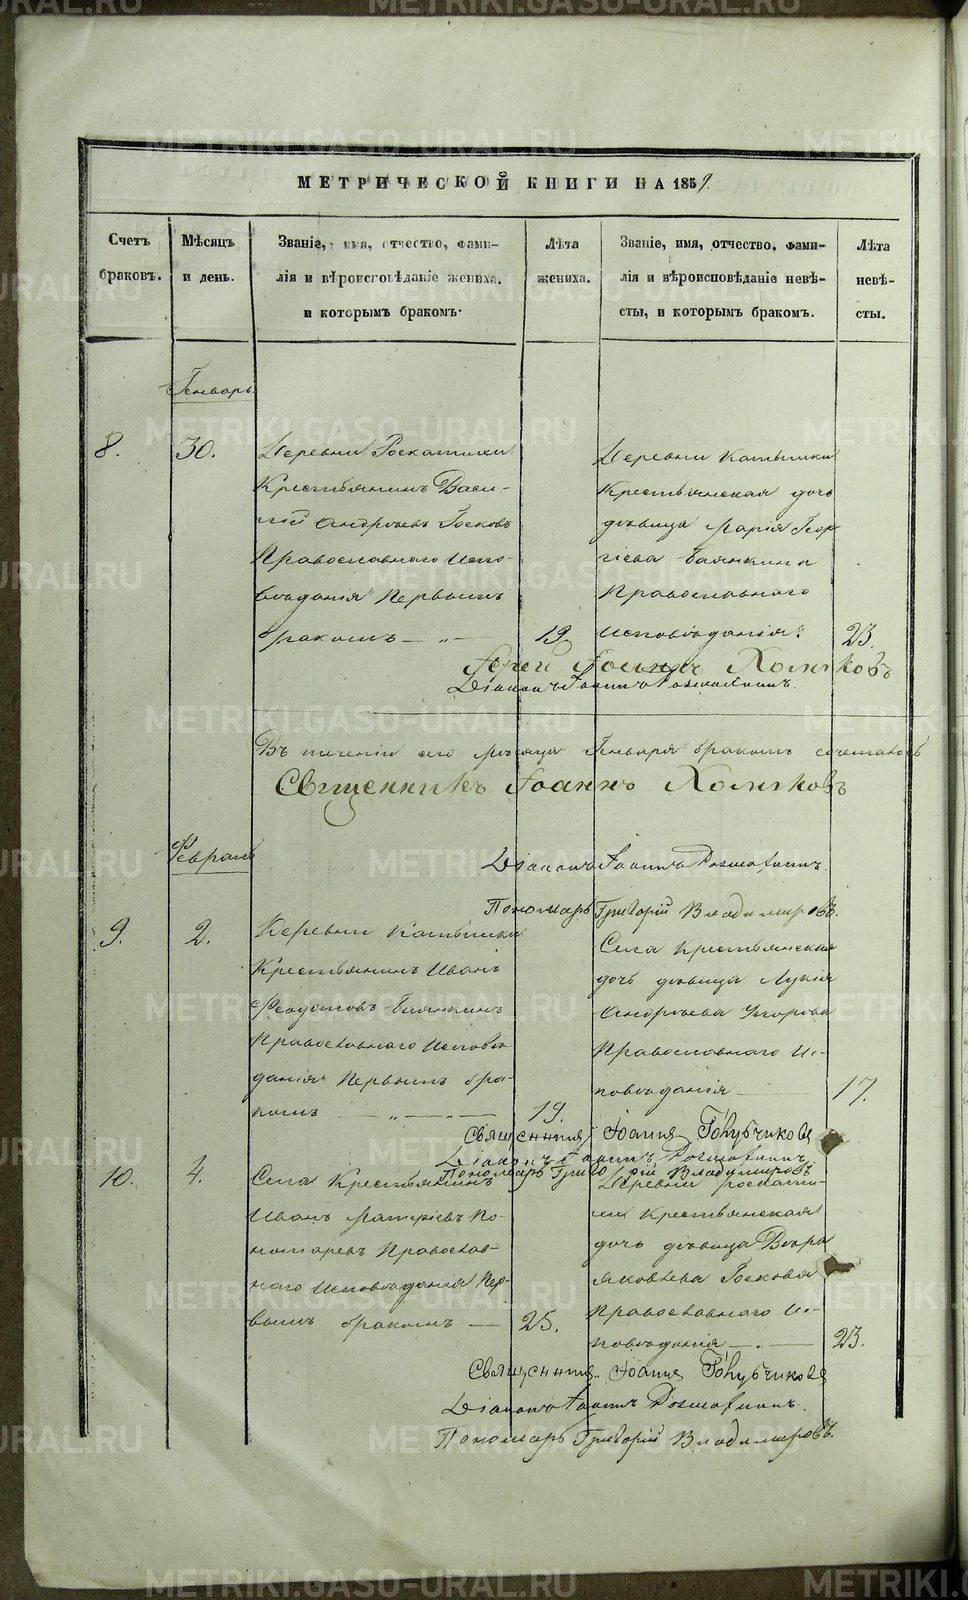 МЕТРИЧЕСКОЙ КНИГИ НА 1859.
Счетъ браковъ.
Мѣсяцъ и день.
Званіе, имя, отчество, фами-
лія и вѣроисповѣданіе жениха.
и которымъ бракомъ.
Лѣта жениха.
Званіе, имя, отчество, фами-
лія и вѣроисповѣданіе невѣ-
сты, и которымъ бракомъ.
Лѣта невѣ-
сты.
Генварь
8.
30.
Деревни Роскатихи
Крестьянинъ Васи-
лій Андреевъ Госковъ
Православнаго Испо-
вѣданія Первымъ
бракомъ
19.
Деревни Камышки
Крестьянская дочь
дѣвица Марія Геор-
гіева Баянкина
Православнаго
исповѣданія.
23.
Іерей Іоаннъ Холмковъ
Діаконъ Іоаннъ
Въ теченіи сего мѣсяца Генваря бракомъ сочеталось
Священникъ Іоаннъ Холмковъ
Февраль
Діаконъ Іоаннъ
Пономарь Григорій Владимировъ.
9.
2.
Деревни Камышки
Крестьянинъ Иванъ
Феодотовъ Баянкинъ
Православнаго Исповѣ-
данія Первымъ бра-
комъ
19.
Села Крестьянская
дочь дѣвица Лукія
Андреева Егорова
Православнаго Ис-
повѣданія
17.
Священникъ Іоаннъ Голубчиковъ
Діаконъ Іоаннъ
Пономарь Григорій Владимировъ
10.
4.
Села Крестьянинъ
Иванъ По-
номаревъ Православ-
наго Исповѣданія Пер-
вымъ бракомъ
25.
Деревни Роскати-
хи Крестьянская
дочь дѣвица Вѣра
Яковлева Госкова
Православнаго Ис-
повѣданія
23.
Священникъ Іоаннъ Голубчиковъ
Діаконъ Іоаннъ
Пономарь Григорій Владимировъ.
METRIKI.GASO-URAL.RU